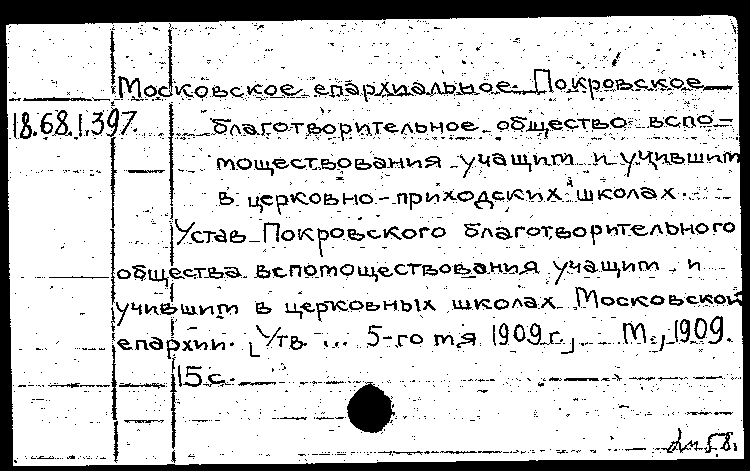 Московское епархиальное Покровское
18.68.1.397. благотворительное общество вспо-
моществования учащим и учившим
в церковно-приходских школах.
Устав Покровского благотворительного
общества вспомоществования учащим и
учившим в церковных школах Московской
епархии. [Утв. ... 5-го мая 1909 г.] М., 1909.
15 с.